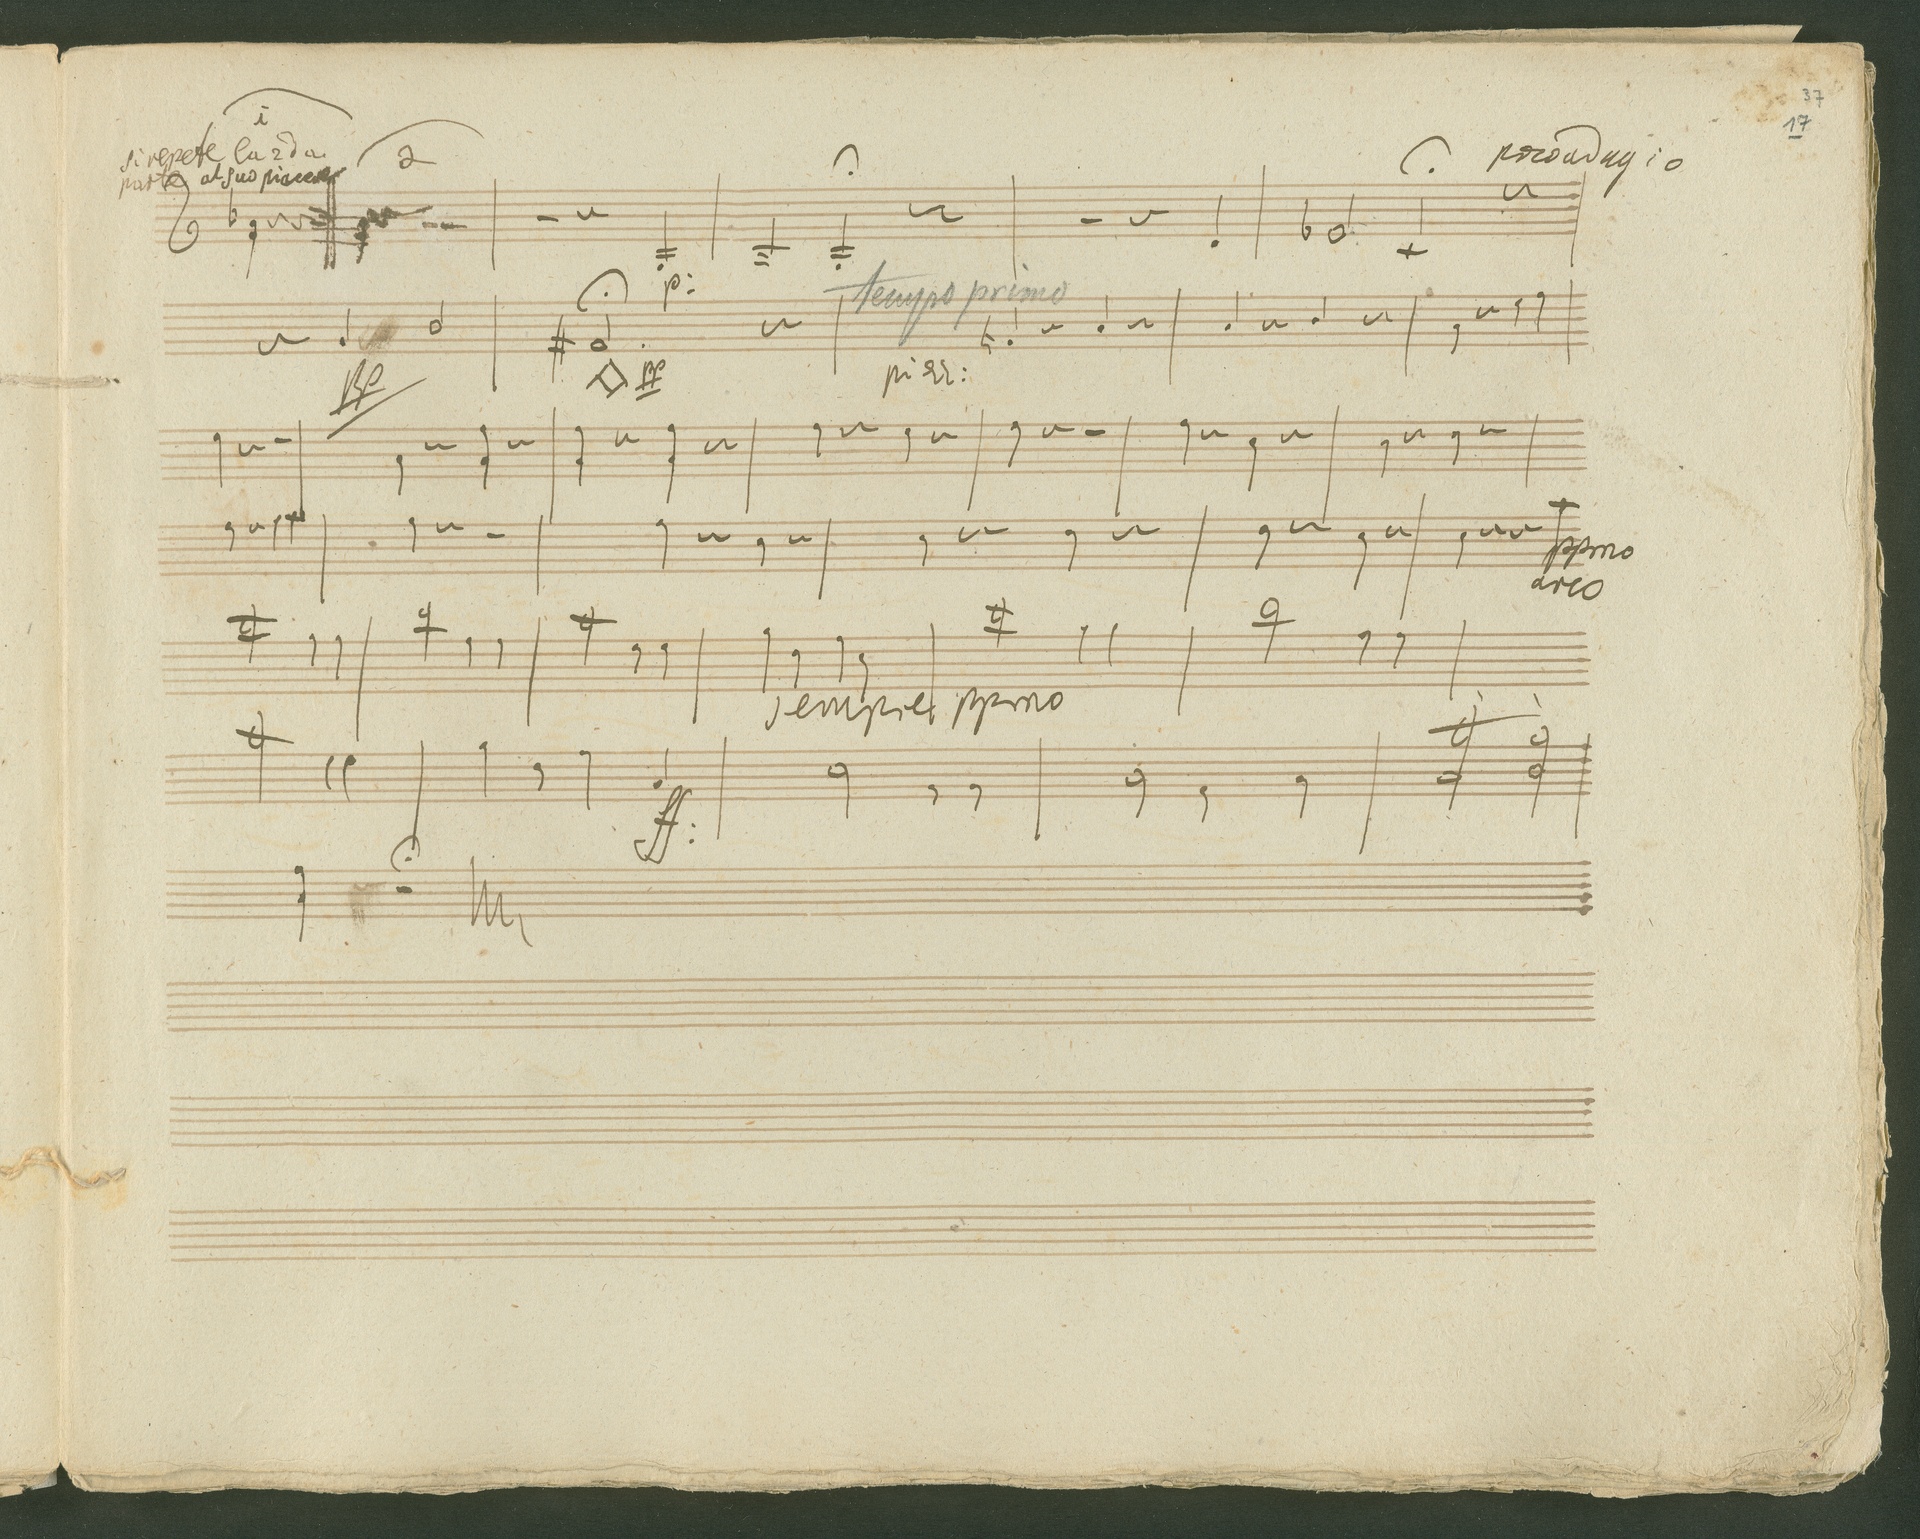 37
17
i
si repete la 2da
parte al suo piacere
2
poco adagio
p:
tempo primo
pp
pp
pizz:
ppmo
arco
sempre ppmo
ff: